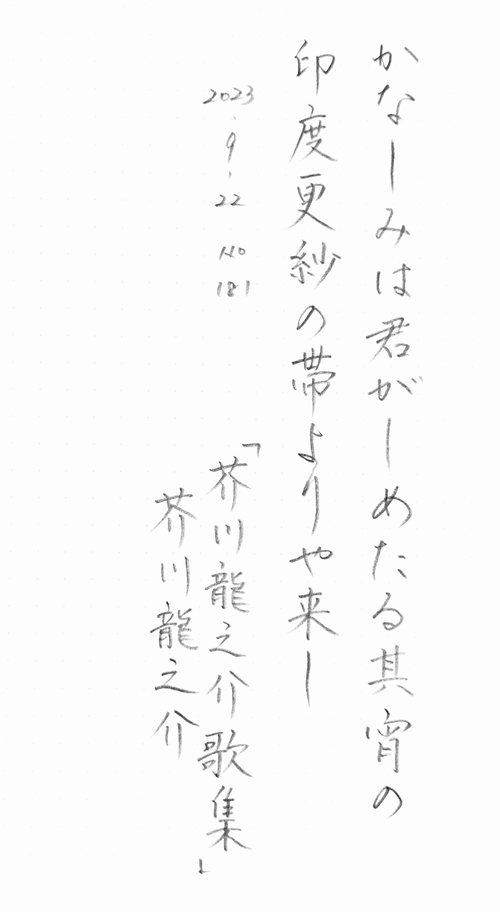 かなしみは君がしめたる其宵の
印度更紗の帯よりや来し
2023.9.22 No 181
「芥川龍之介歌集」
芥川龍之介